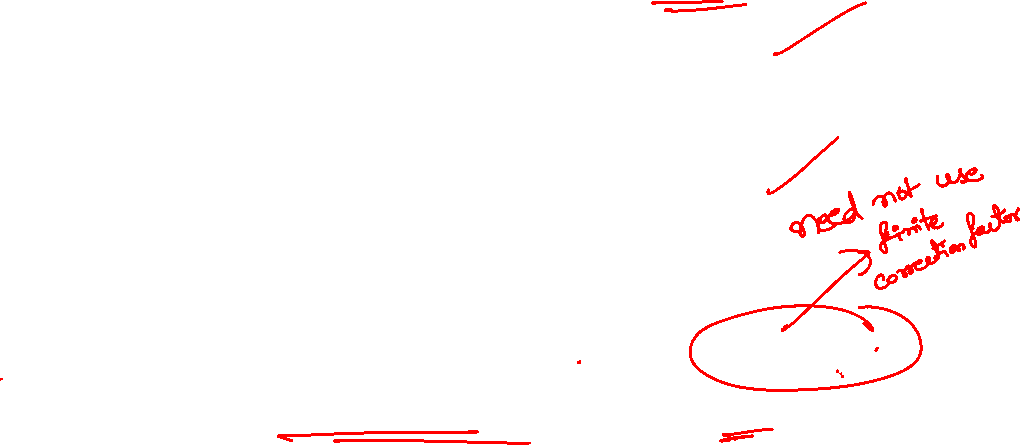 need not use
finite
correction factor